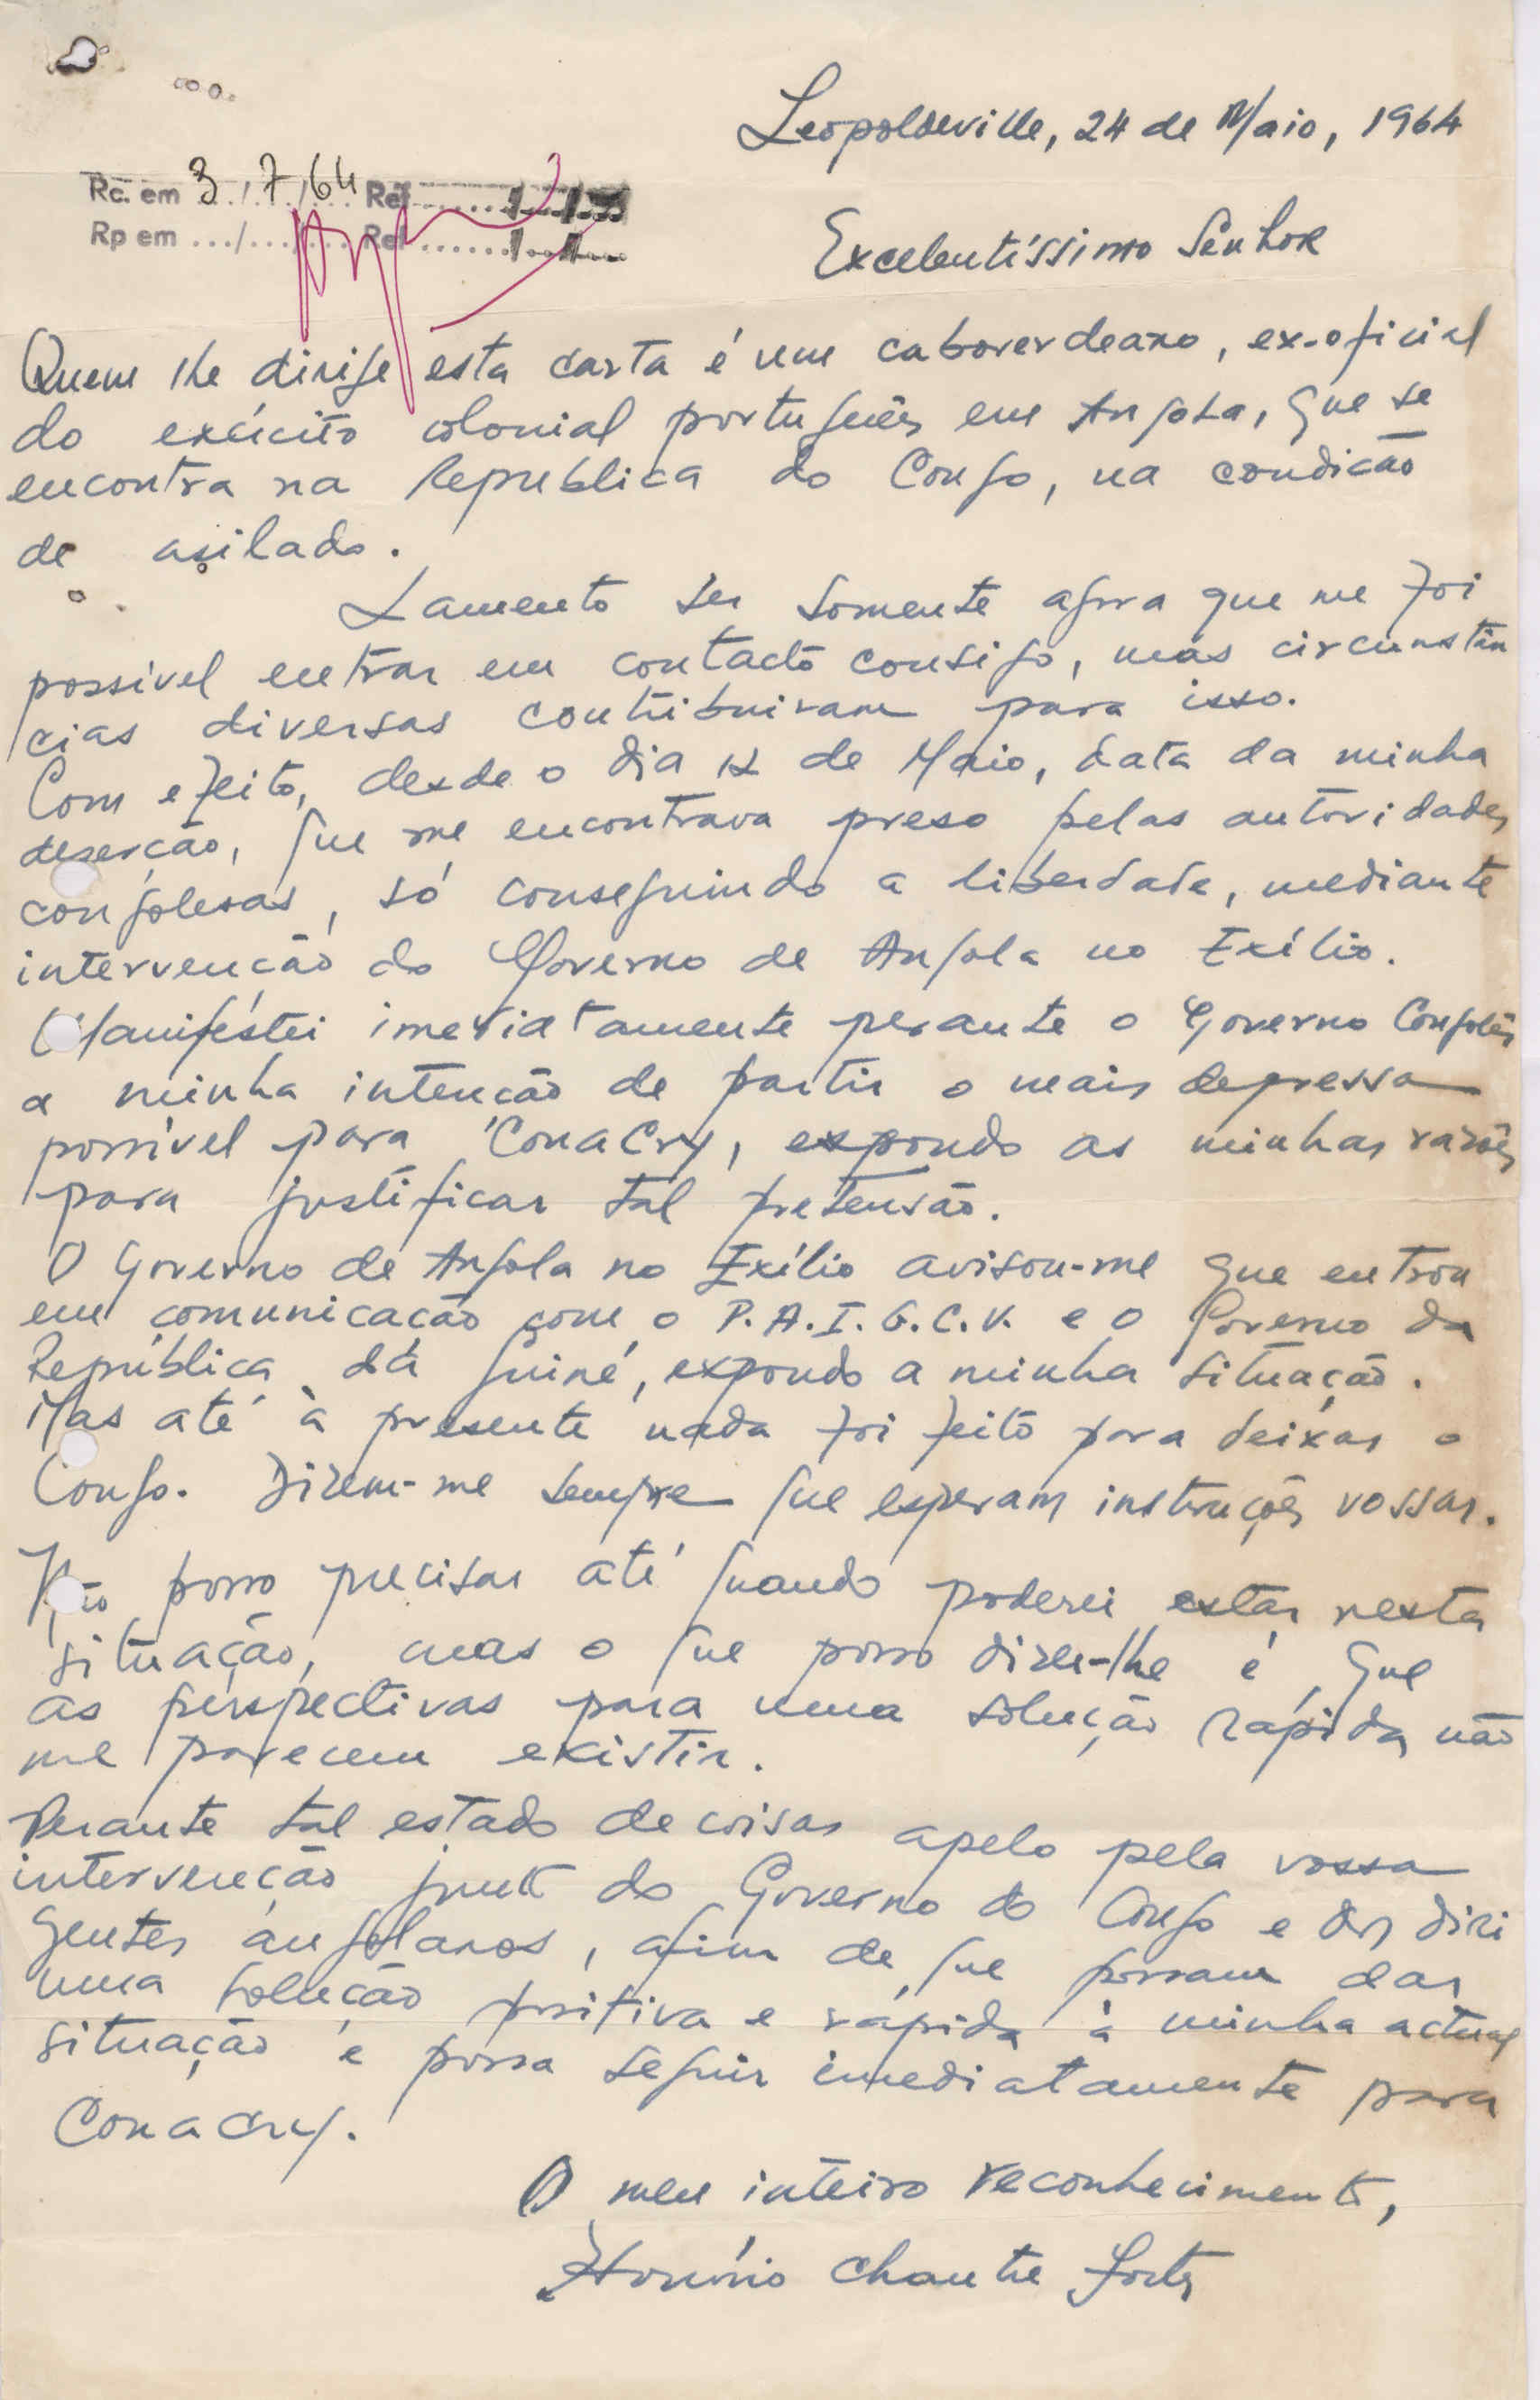 Leopoldeville, 24 de Maio, 1964
Rc. em 3/7/64 Ref
Rp em .../...... Ref
Excelentíssimo Senhor
Quem lhe dirige esta carta é um caboverdeano, ex-oficial
do exército colonial português em Angola, que se
encontra na Republica do Congo, na condição
de asilado.
Lamento ser somente agora que me foi
possível entrar em contacto consigo, mas circunstân
cias diversas contribuiram para isso.
Com efeito, desde o dia de Maio, data da minha
deserção, que me encontrava preso pelas autoridades
congolesas, só conseguindo a liberdade, mediante
intervenção do Governo de Angola no Exílio.
Manifestei imediatamente perante o Governo Congolês
a minha intenção de partir o mais depressa
possível para Conacry, expondo as minhas razões
para justificar tal pretensão.
O Governo de Angola no Exílio avisou-me que entrou
em comunicação com o P.A.I.G.C.V. e o Governo da
República da Guiné, expondo a minha situação.
Mas até à presente nada foi feito para deixar o
Congo. Dizem-me sempre que esperam instruções vossas.
Não posso precisar até quando poderei estar nesta
situação, mas o que posso dizer-lhe é que
as perspectivas para uma solução rápida não
me parecem existir.
Perante tal estado de coisas apelo pela vossa
intervenção junto do Governo do Congo e dos diri
gentes angolanos, afim de que possam dar
uma solução positiva e rápida à minha actual
situação e possa seguir imediatamente para
Conacry.
O meu inteiro reconhecimento,
Honório Chantre Fortes